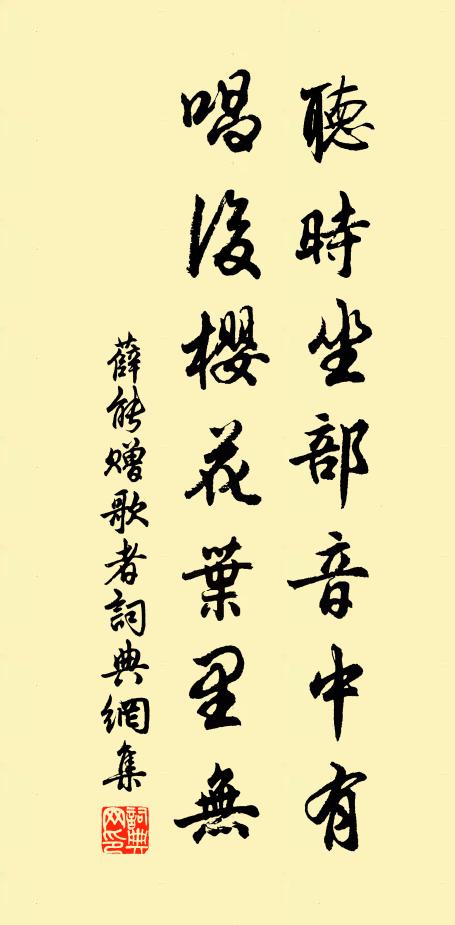 聽時坐部音中有
唱後櫻花葉里無
薛能贈歌者詞典網集
詞典網印